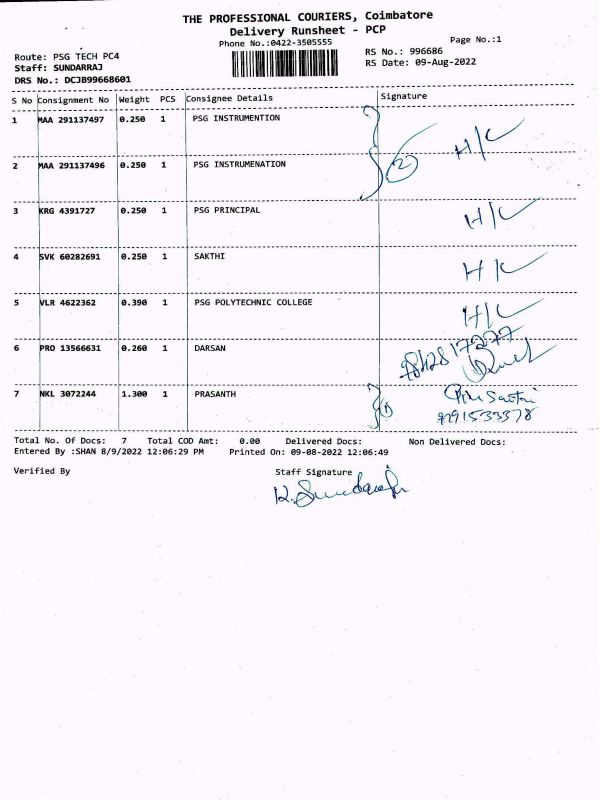 THE PROFESSIONAL COURIERS, Coimbatore
Delivery Runsheet - PCP
Phone No.:0422-3505555
Page No.:1
Route: PSG TECH PC4
Staff: SUNDARRAJ
DRS No.: DCJB99668601
RS No.: 996686
RS Date: 09-Aug-2022
S No Consignment No Weight PCS Consignee Details Signature
1 MAA 291137497 0.250 1 PSG INSTRUMENTION H/C
2 MAA 291137496 0.250 1 PSG INSTRUMENATION 2
3 KRG 4391727 0.250 1 PSG PRINCIPAL H/C
4 SVK 60282691 0.250 1 SAKTHI H/C
5 VLR 4622362 0.390 1 PSG POLYTECHNIC COLLEGE H/C
6 PRO 13566631 0.260 1 DARSAN
7 NKL 3072244 1.300 1 PRASANTH 1
Total No. Of Docs: 7 Total COD Amt: 0.00 Delivered Docs: Non Delivered Docs:
Entered By :SHAN 8/9/2022 12:06:29 PM Printed On: 09-08-2022 12:06:49
Verified By Staff Signature
K. Sundarraj